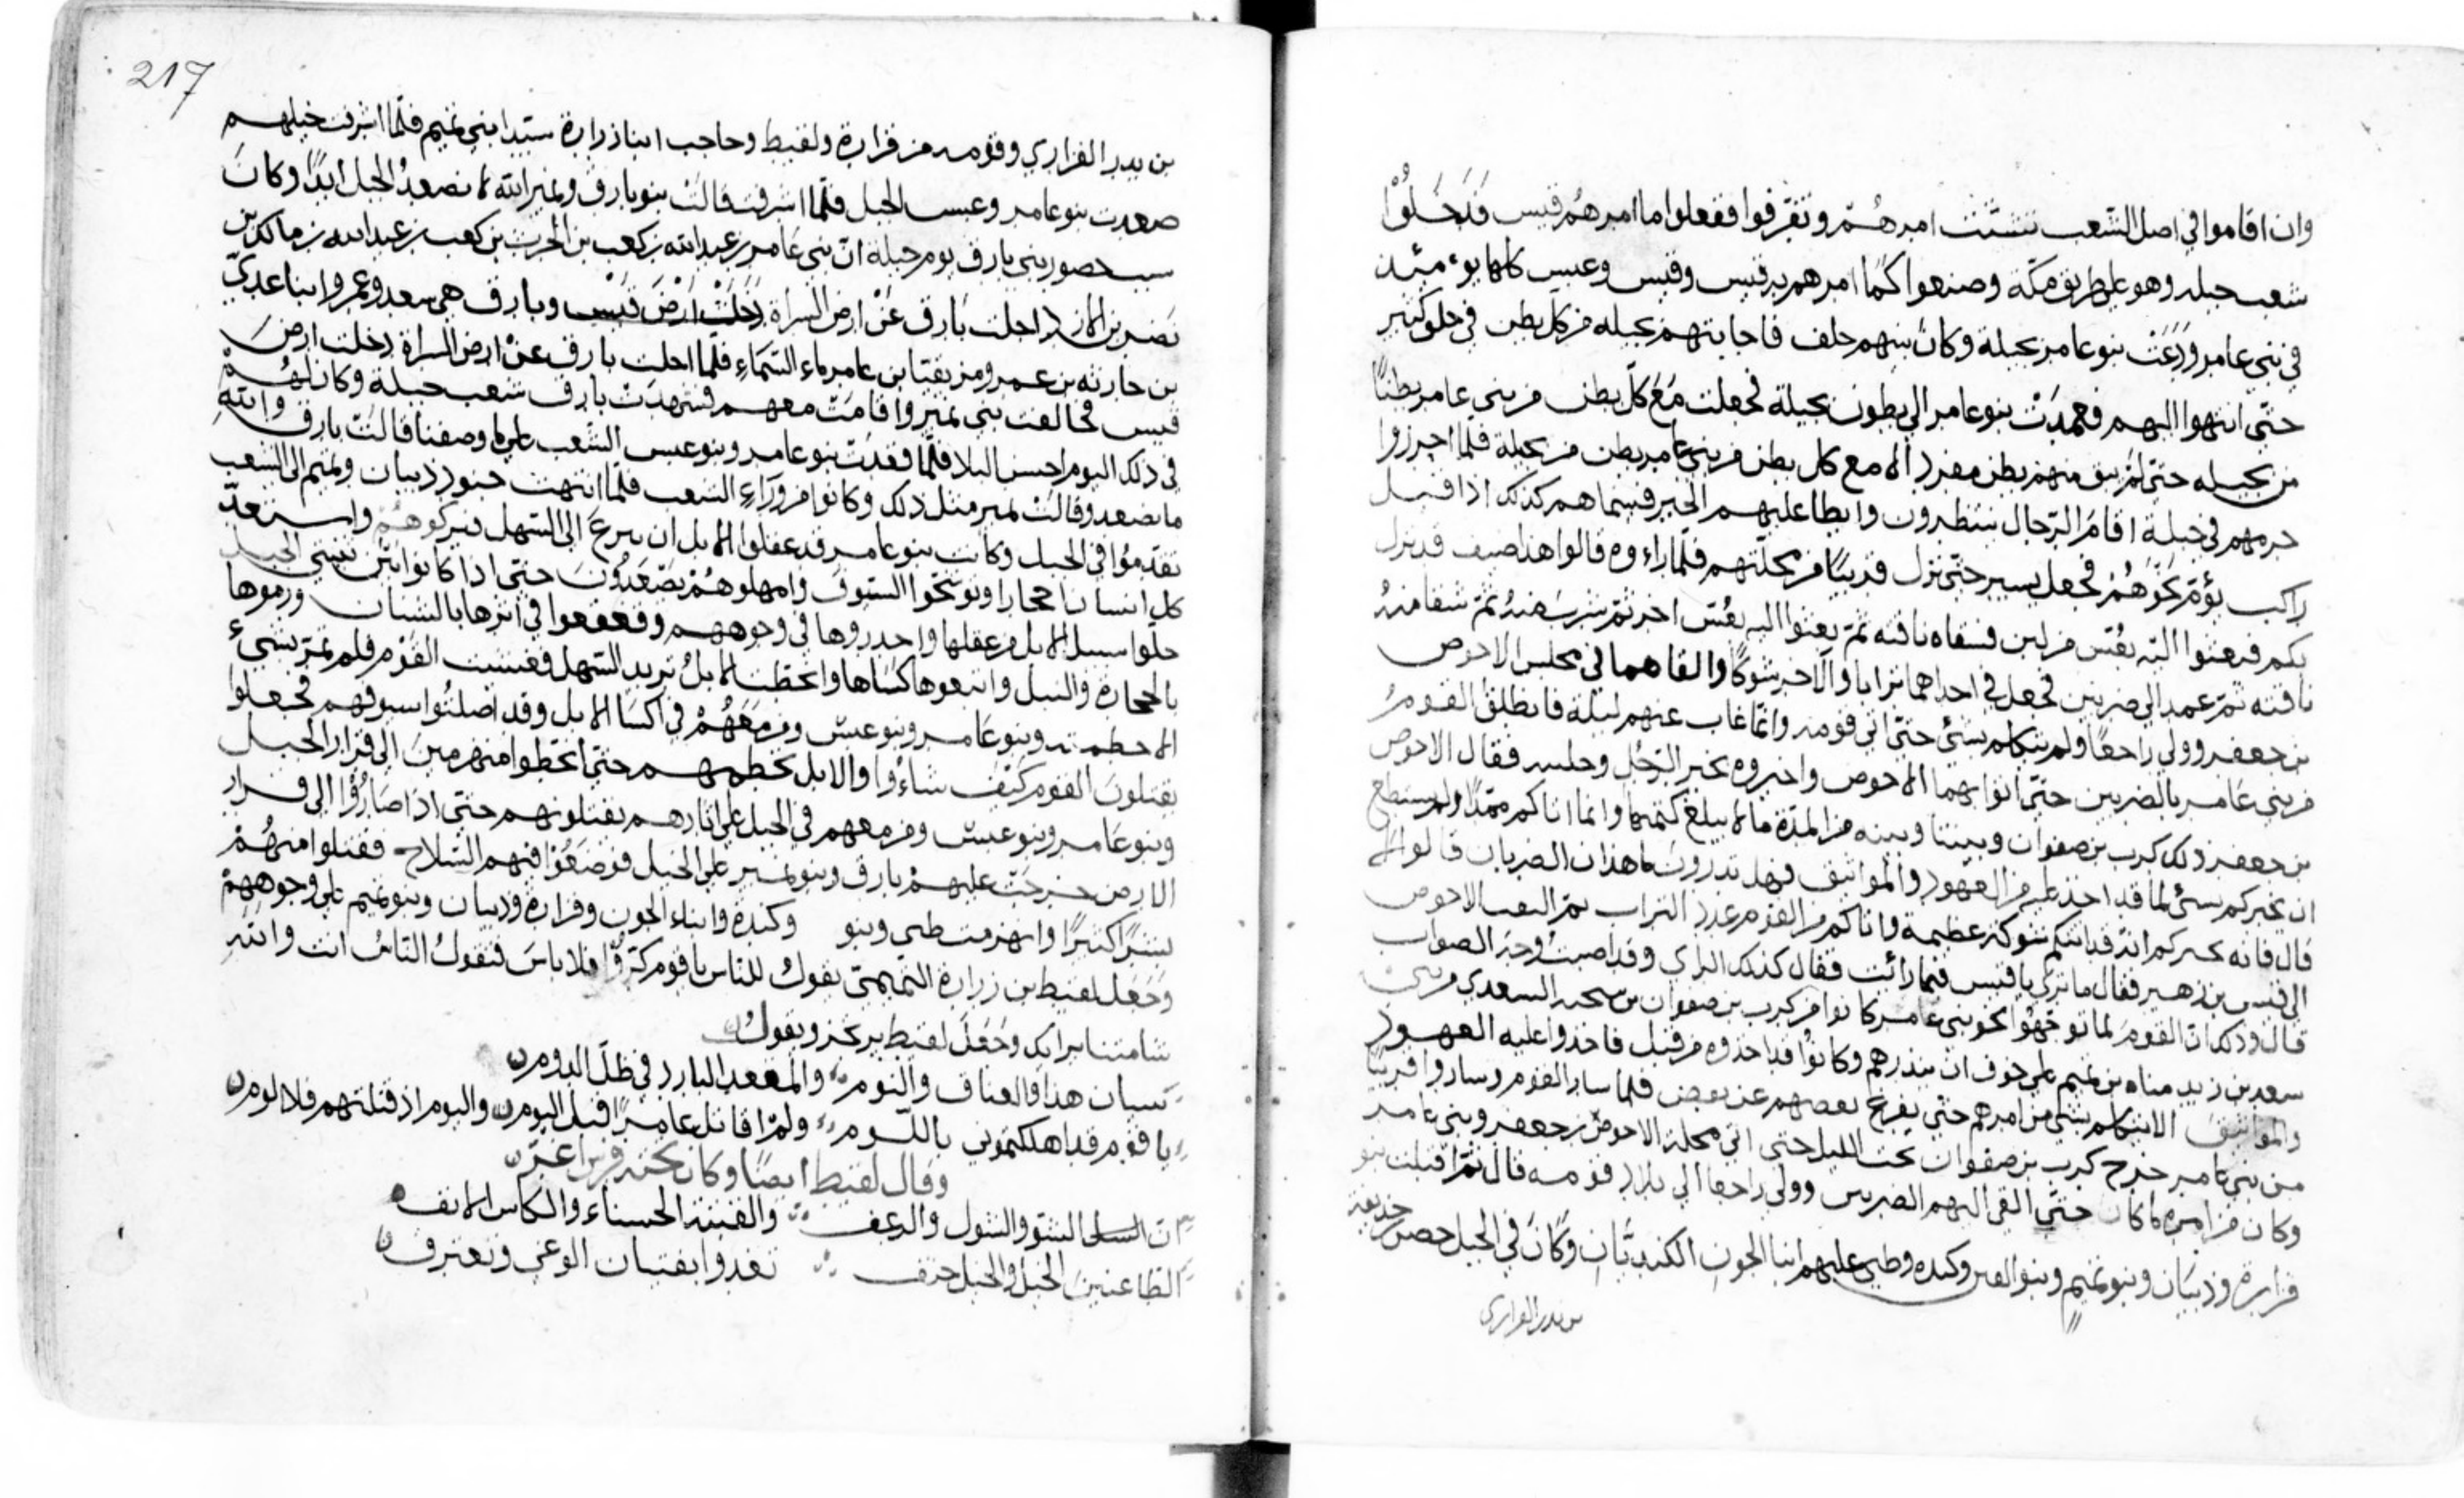 وان اقاموا في اصل الشعب تشتت امرهم وتفرقوا ففعلوا ما امرهم قيس فدخلوا
شعب جبله وهو على طريق مكة وصنعوا كما امرهم به قيس وقيس وعبس كلها يومئذ
في بني عامر ودعت بنو عامر بجيلة وكان بينهم حلف فاجابتهم بجيله من كل بطن في خلق كثير
حتى انتهوا اليهم فعمدت بنو عامر الى بطون بجيلة فجعلت مع كل بطن من بني عامر بطنا
من بجيله حتى لم يبق منهم بطن مفرد الا مع كل بطن من بني عامر بطن من بجيلة فلما احرزوا
حرمهم في جبلة اقام الرجال ينتظرون وابطا عليهم الخبر فبينما هم كذلك اذا قبل
راكب يؤم نحوهم فجعل يسير حتى نزل قريبا من محلتهم فلما راءوه قالوا هذا ضيف قد نزل
بكم فبعثوا اليه بعس من لبن فسقاه ناقته ثم بعثوا اليه بعس اخر ثم شرب منه ثم سقا منه
ناقته ثم عمد الى ضربتين فجعل في احداهما ترابا والاخر شوكا والقاهما في مجلس الاحوص
بن جعفر وولى راجعا ولم يتكلم بشئ حتى اتى قومه وانما غاب عنهم ليلة فانطلق القوم
من بني عامر بالضربتين حتى اتوا بهما الاحوص واخبروه بخبر الرجل وجلسه فقال الاحوص
بن جعفر ذلك كرب بن صفوان وبيننا وبينه من المدة ما لا يبلغ كتمها وانما اتاكم ممدا ولم يستطع
ان يخبركم بشئ لما قد اخذ عليه من العهود والمواثيق فهل تدرون ما هذان الضربان قالوا لا
قال فانه يخبركم انه قد اتتكم شوكة عظيمة واتاكم من القوم عدد التراب ثم التفت الاحوص
الى قيس بن زهير فقال ما ترى يا قيس فيما رائت فقال كذلك الراي وقد اصبت وجه الصواب
قال وذلك ان القوم لما توجهوا نحو بني عامر كانوا مر كرب بن صفوان بن سحنه السعدي من بني
سعد بن زيد مناه بن تميم على خوف ان ينذرهم وكانوا قد اخذوه من قبل فاخذوا عليه العهود
والمواثيق الا يتكلم بشي من امرهم حتى يفرغ بعضهم عن بعض فلما سار القوم وساروا قريبا
من بني عامر خرج كرب بن صفوان تحت الليل حتى اتى محلة الاحوص بن جعفر وبني عامر
وكان من امره ما كان حتى القى اليهم الضربين وولى راجعا الى بلاد قومه قال ثم اقبلت بنو
فزارة وذبيان وبنو تميم وبنو القين وكنده وطي عليهم ابنا الجون الكنديان وكان في الخيل حصن بن حذيفة
بن بدر الفزاري
217
بن بدر الفزاري وقومه من فزارة ولقيط وحاجب ابنا زرارة سيدا بني تميم فلما اشرفت خيلهم
صعدت بنو عامر وعبس الجبل فلما اشرفت قالت بنو بارق ونمير انه لا نصعد الجبل ابدا وكان
سبب حضور بني بارق يوم جبلة ان بني عامر بن عبد الله بن كعب بن الحرث بن كعب بن عبد الله بن مالك بن
نصر بن الازد اجلت بارق عن ارض السراة دخلت ارض قيس وبارق هي سعد وعمرو ابنا عدي
بن حارثه بن عمرو مزيقيا بن عامر ماء السماء فلما اجلت بارق عن ارض السراة دخلت ارض
قيس فحالفت بني نمير واقامت معهم فشهدت بارق شعب جبلة وكان لهم
في ذلك اليوم احسن البلا فلما قعدت بنو عامر وبنو عبس الشعب على ما وصفنا قالت بارق والله
ما نصعد وقالت نمير مثل ذلك وكانوا من وراء الشعب فلما انتهت جنود ذبيان وتميم الى الشعب
تقدموا في الجبل وكانت بنو عامر قد عقلوا الابل ان ترع الى السهل فتركوهم واستعد
كل انسان احجارا وتوشحوا السيوف وامهلوهم يصعدون حتى اذا كانوا بين ثنيتي الجبل
حلوا سبيل الابل من عقلها واحدروها في وجوههم وقعقعوا في اثرها بالشنان ورموها
بالحجارة والنبل واتبعوها كساها وانحطت الابل تريد السهل فغشيت القوم فلم تمر بشيء
الا حطمته وبنو عامر وبنو عبس ومن معهم في اكسا الابل وقد اصلتوا سيوفهم فجعلوا
يقتلون القوم كيف شاءوا والابل تحطمهم حتى انحطوا منهزمين الى قرار الجبل
وبنو عامر وبنو عبس ومن معهم في الجبل على اثارهم يقتلونهم حتى اذا صاروا الى قرار
الارض خرجت عليهم بارق وبنو نمير على الخيل فوضعوا فيهم السلاح فقتلوا منهم
بشرا كثيرا وانهزمت طي وبنو وكندة وابناء الجون وفزارة وذبيان وبنو تميم على وجوههم
وجعل لقيط بن زرارة التميمي يقول للناس يا قوم كروا فلا باس فتقول الناس انت والله
شامتنا برايك وجعل لقيط يرتجز ويقول
شبان هذا والعناق والنوم والمقعد البارد في ظل الدوم
يا قوم قد اهلكتموني باللوم ولم اقاتل عامرا قبل اليوم واليوم اذ قتلتهم فلا لوم
وقال لقيط ايضا وكان تحته فرس اغر
ان الشوا والنشول والرغف والقينة الحسناء والكاس الانف
الطاعنين الخيل والخيل خنف تغدوا بفتيان الوغى وتعترف